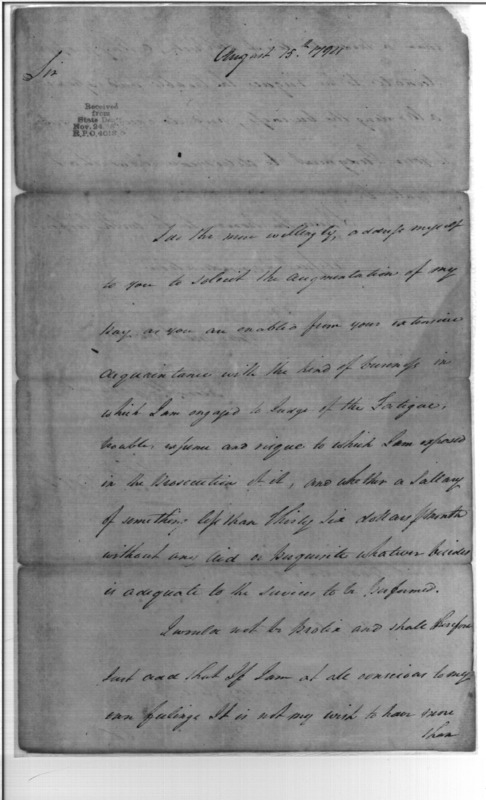 August 15th 1794
Sir
Received
from
State Dep
Nov. 24.
H.P.O. 4019
I do the more willingly, address myself
to you to solicit the augmentation of my
Pay, as you are enabled from your extensive
acquaintance with the kind of business in
which I am engaged to Judge of the Fatigue,
trouble, expense and risque to which I am exposed
in the Prosecution of it, and whether a Sallary
of something less than Thirty Six dollars P month
without any Aid or Perquisite whatever besides
is adequate to the services to be Performed.
I would not be Prolix and shall therefore
Just add that If I am at all conscious to my
own feelings It is not my wish to have more
than